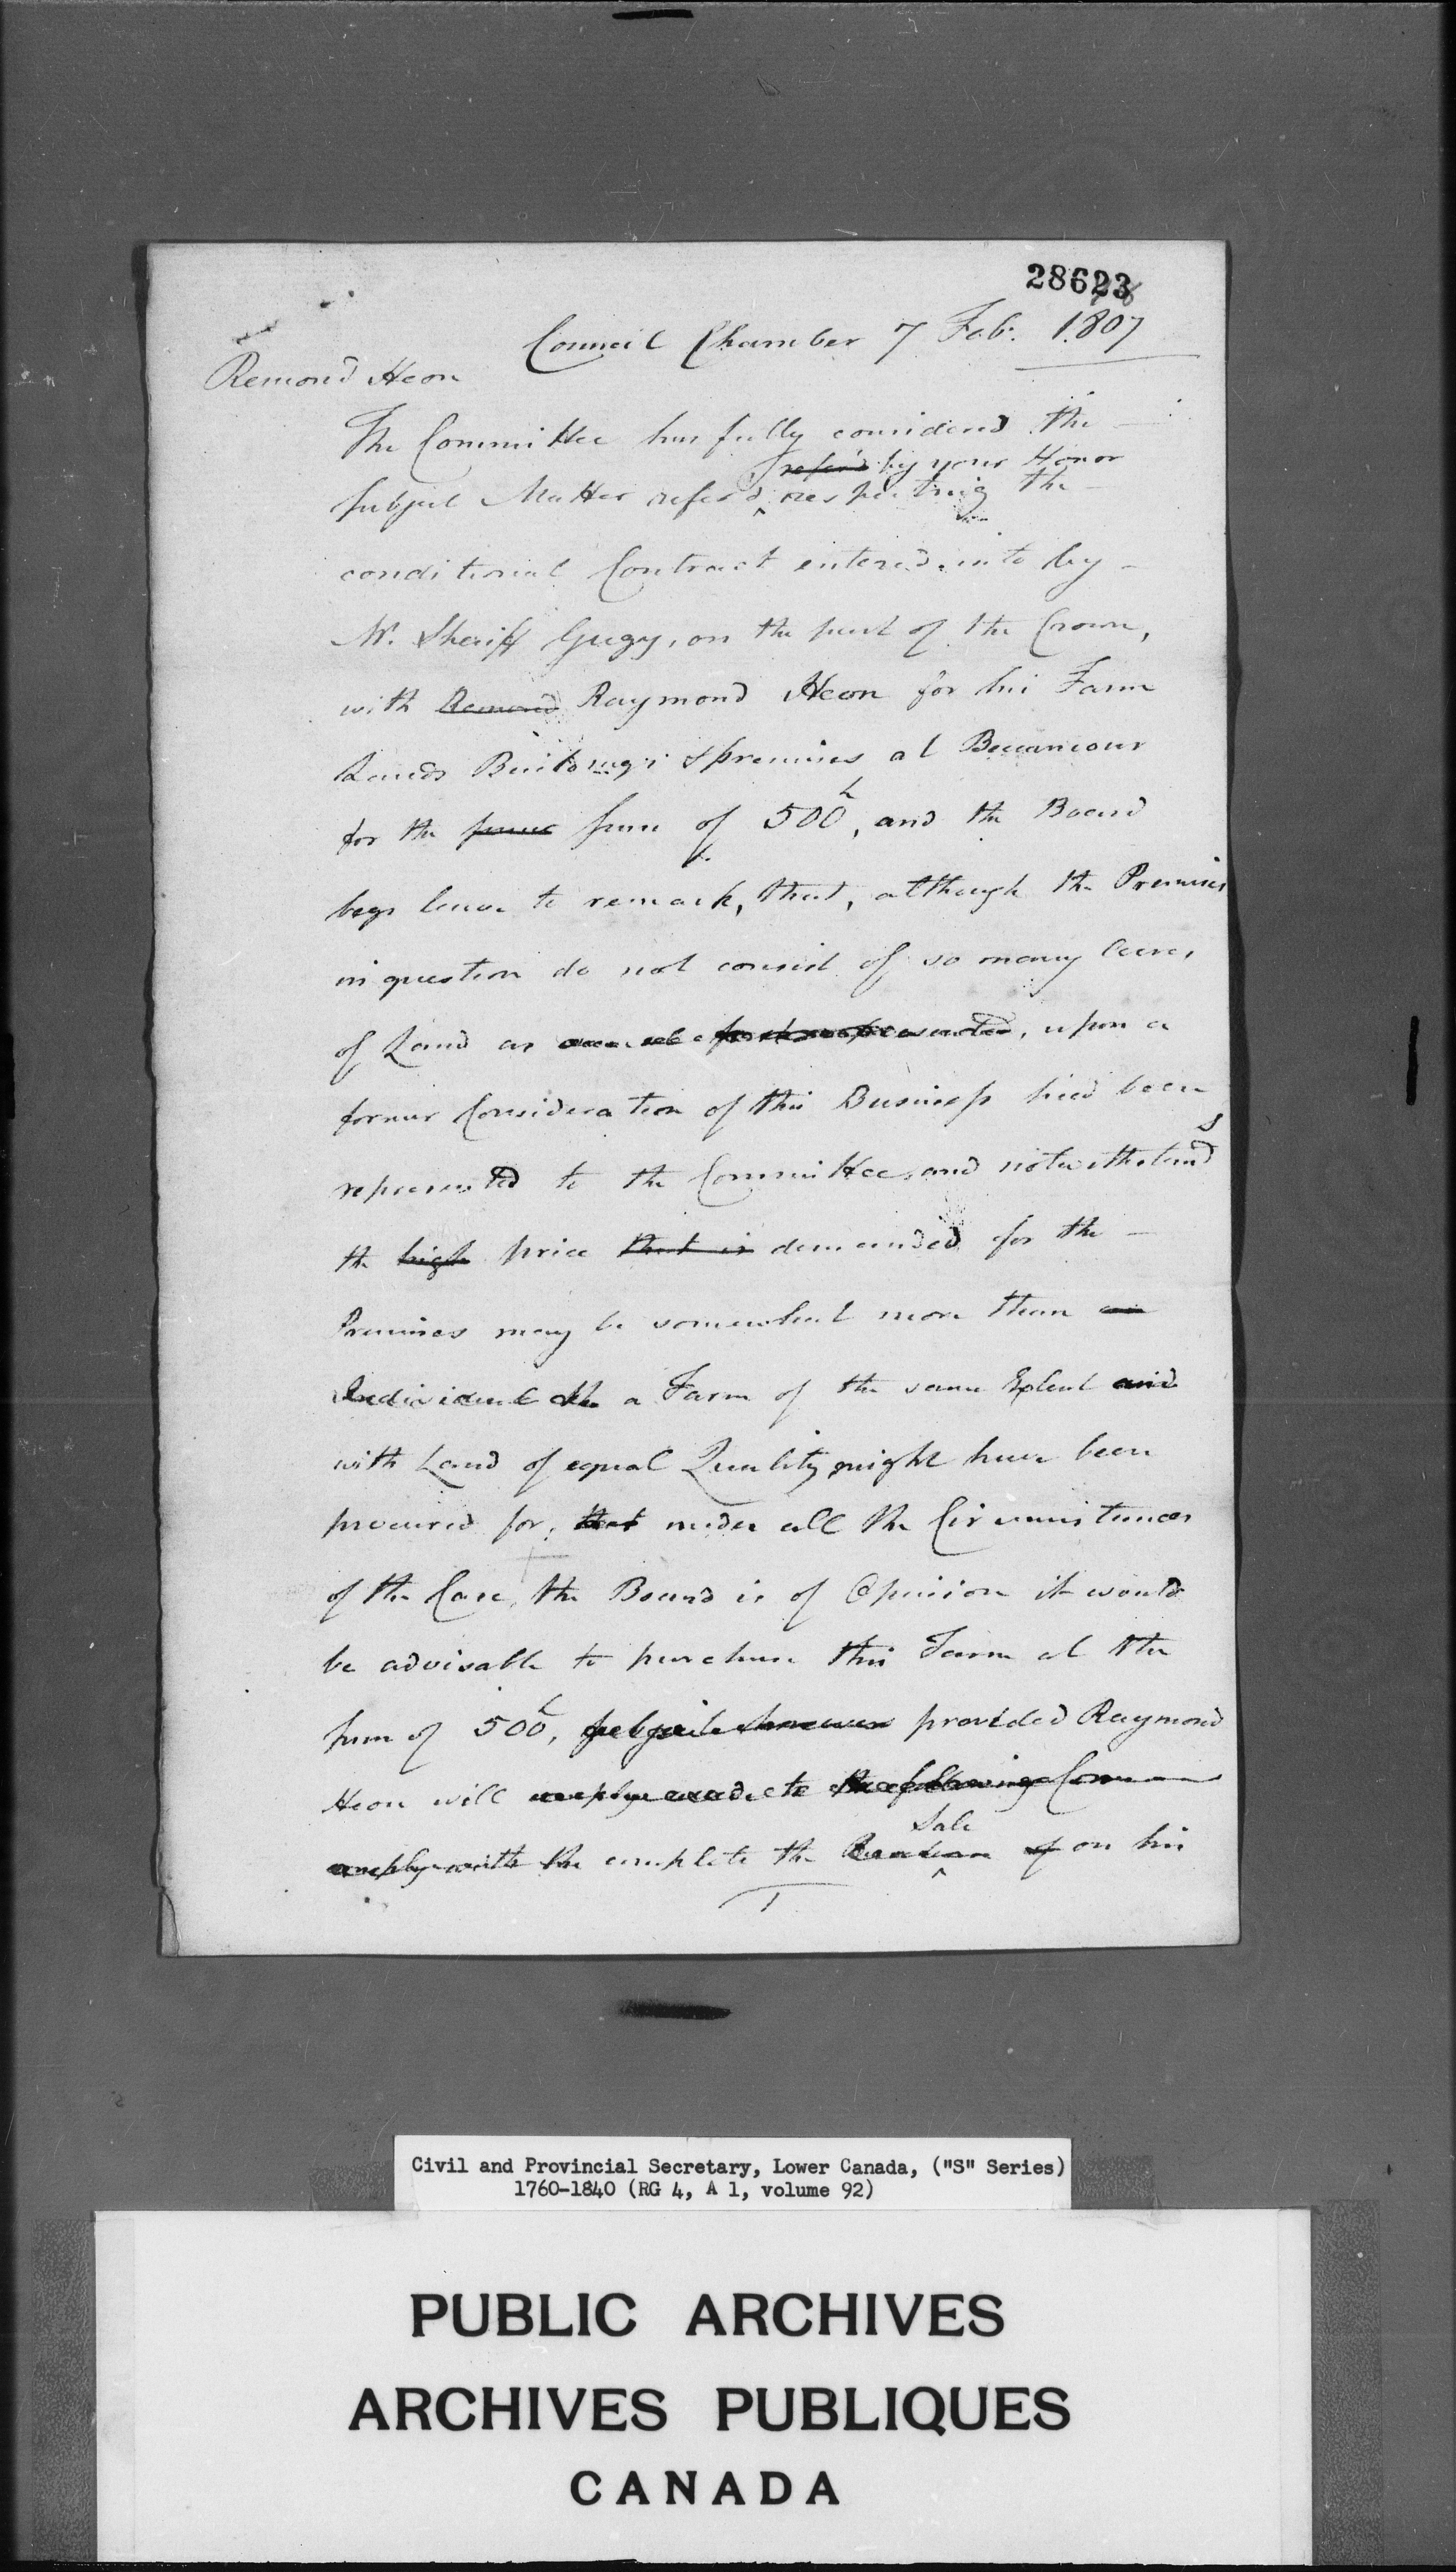 28623
Council Chamber 7 Feb. 1807
Remond Heon
The Committee has fully considered the
refer'd by your Honor
Subject Matter referd respecting the
conditional Contract entered into by
Mr. Sheriff Gugy, on the part of the Crown,
with Remond Raymond Heon for his Farm
Lands Buildings & premises at Becancour
for the same Sum of 500£, and the Board
begs leave to remark, that, although the Premises
in question do not consist of so many Acres
of Land as upon a
former Consideration of this Business had been
represented to the Committee, and notwithstandg
the high price that is demanded for the
Premises may be somewhat more than an
Individual a Farm of the same Extent and
with Land of equal Quality might have been
procured for, that under all the Circumstances
of the Case, the Board is of Opinion it would
be advisable to purchase this Farm at the
Sum of 500£, subject however provided Raymond
Heon will comply to the following
Sale
comply with the complete the of on his
Civil and Provincial Secretary, Lower Canada, ("S" Series)
1760-1840 (RG 4, A 1, volume 92)
PUBLIC ARCHIVES
ARCHIVES PUBLIQUES
CANADA